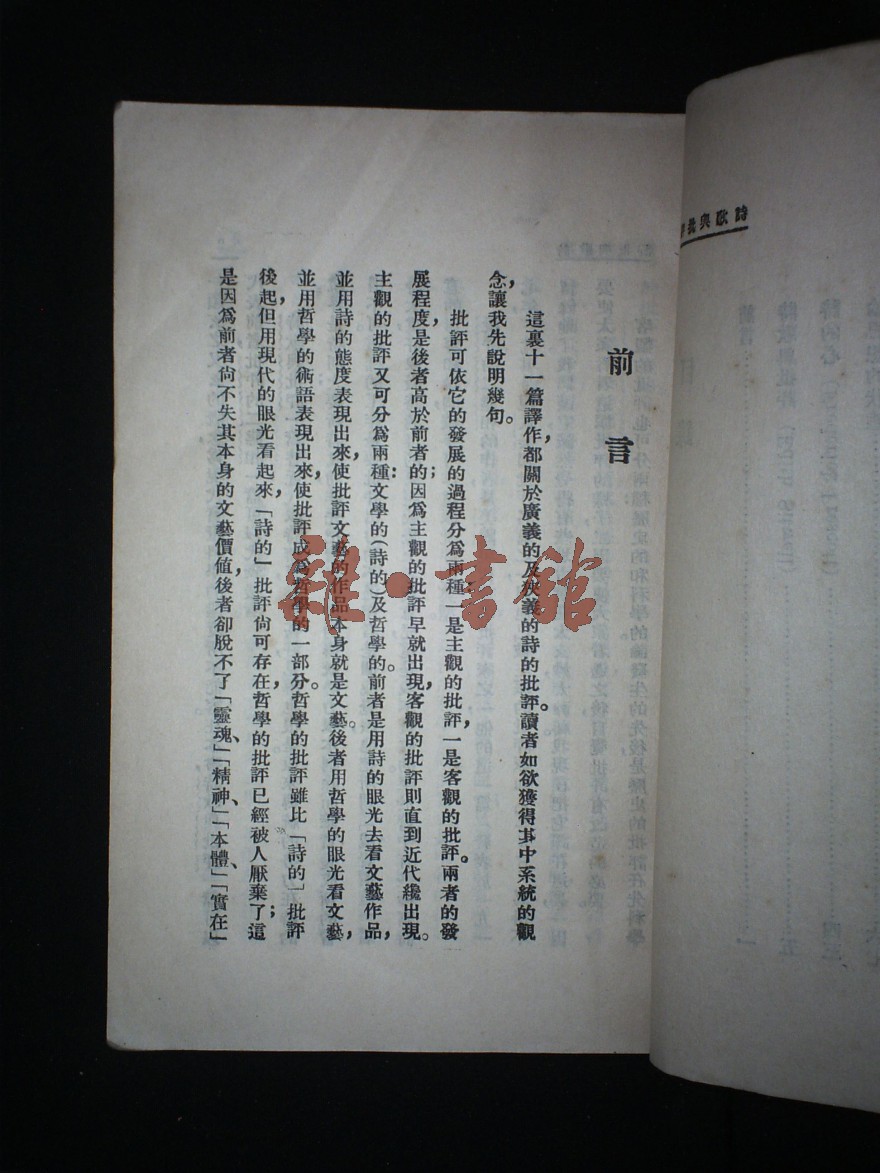 前言
這裏十一篇譯作，都關於廣義的及狹義的詩的批評。讀者如欲獲得其中系統的觀
念，讓我先說明幾句。
批評可依它的發展的過程分爲兩種一是主觀的批評，一是客觀的批評。兩者的發
展程度，是後者高於前者的；因爲主觀的批評早就出現，客觀的批評則直到近代纔出現。
主觀的批評又可分爲兩種：文學的（詩的）及哲學的。前者是用詩的眼光去看文藝作品，
並用詩的態度表現出來，使批評文藝的作品本身就是文藝。後者用哲學的眼光看文藝，
並用哲學的術語表現出來，使批評成爲哲學的一部分。哲學的批評雖比「詩的」批評
後起，但用現代的眼光看起來，「詩的」批評尙可存在，哲學的批評已經被人厭棄了；這
是因爲前者尙不失其本身的文藝價値，後者卻脫不了「靈魂」、「精神」、「本體」、「實在」
雜·書館
詩歌與批